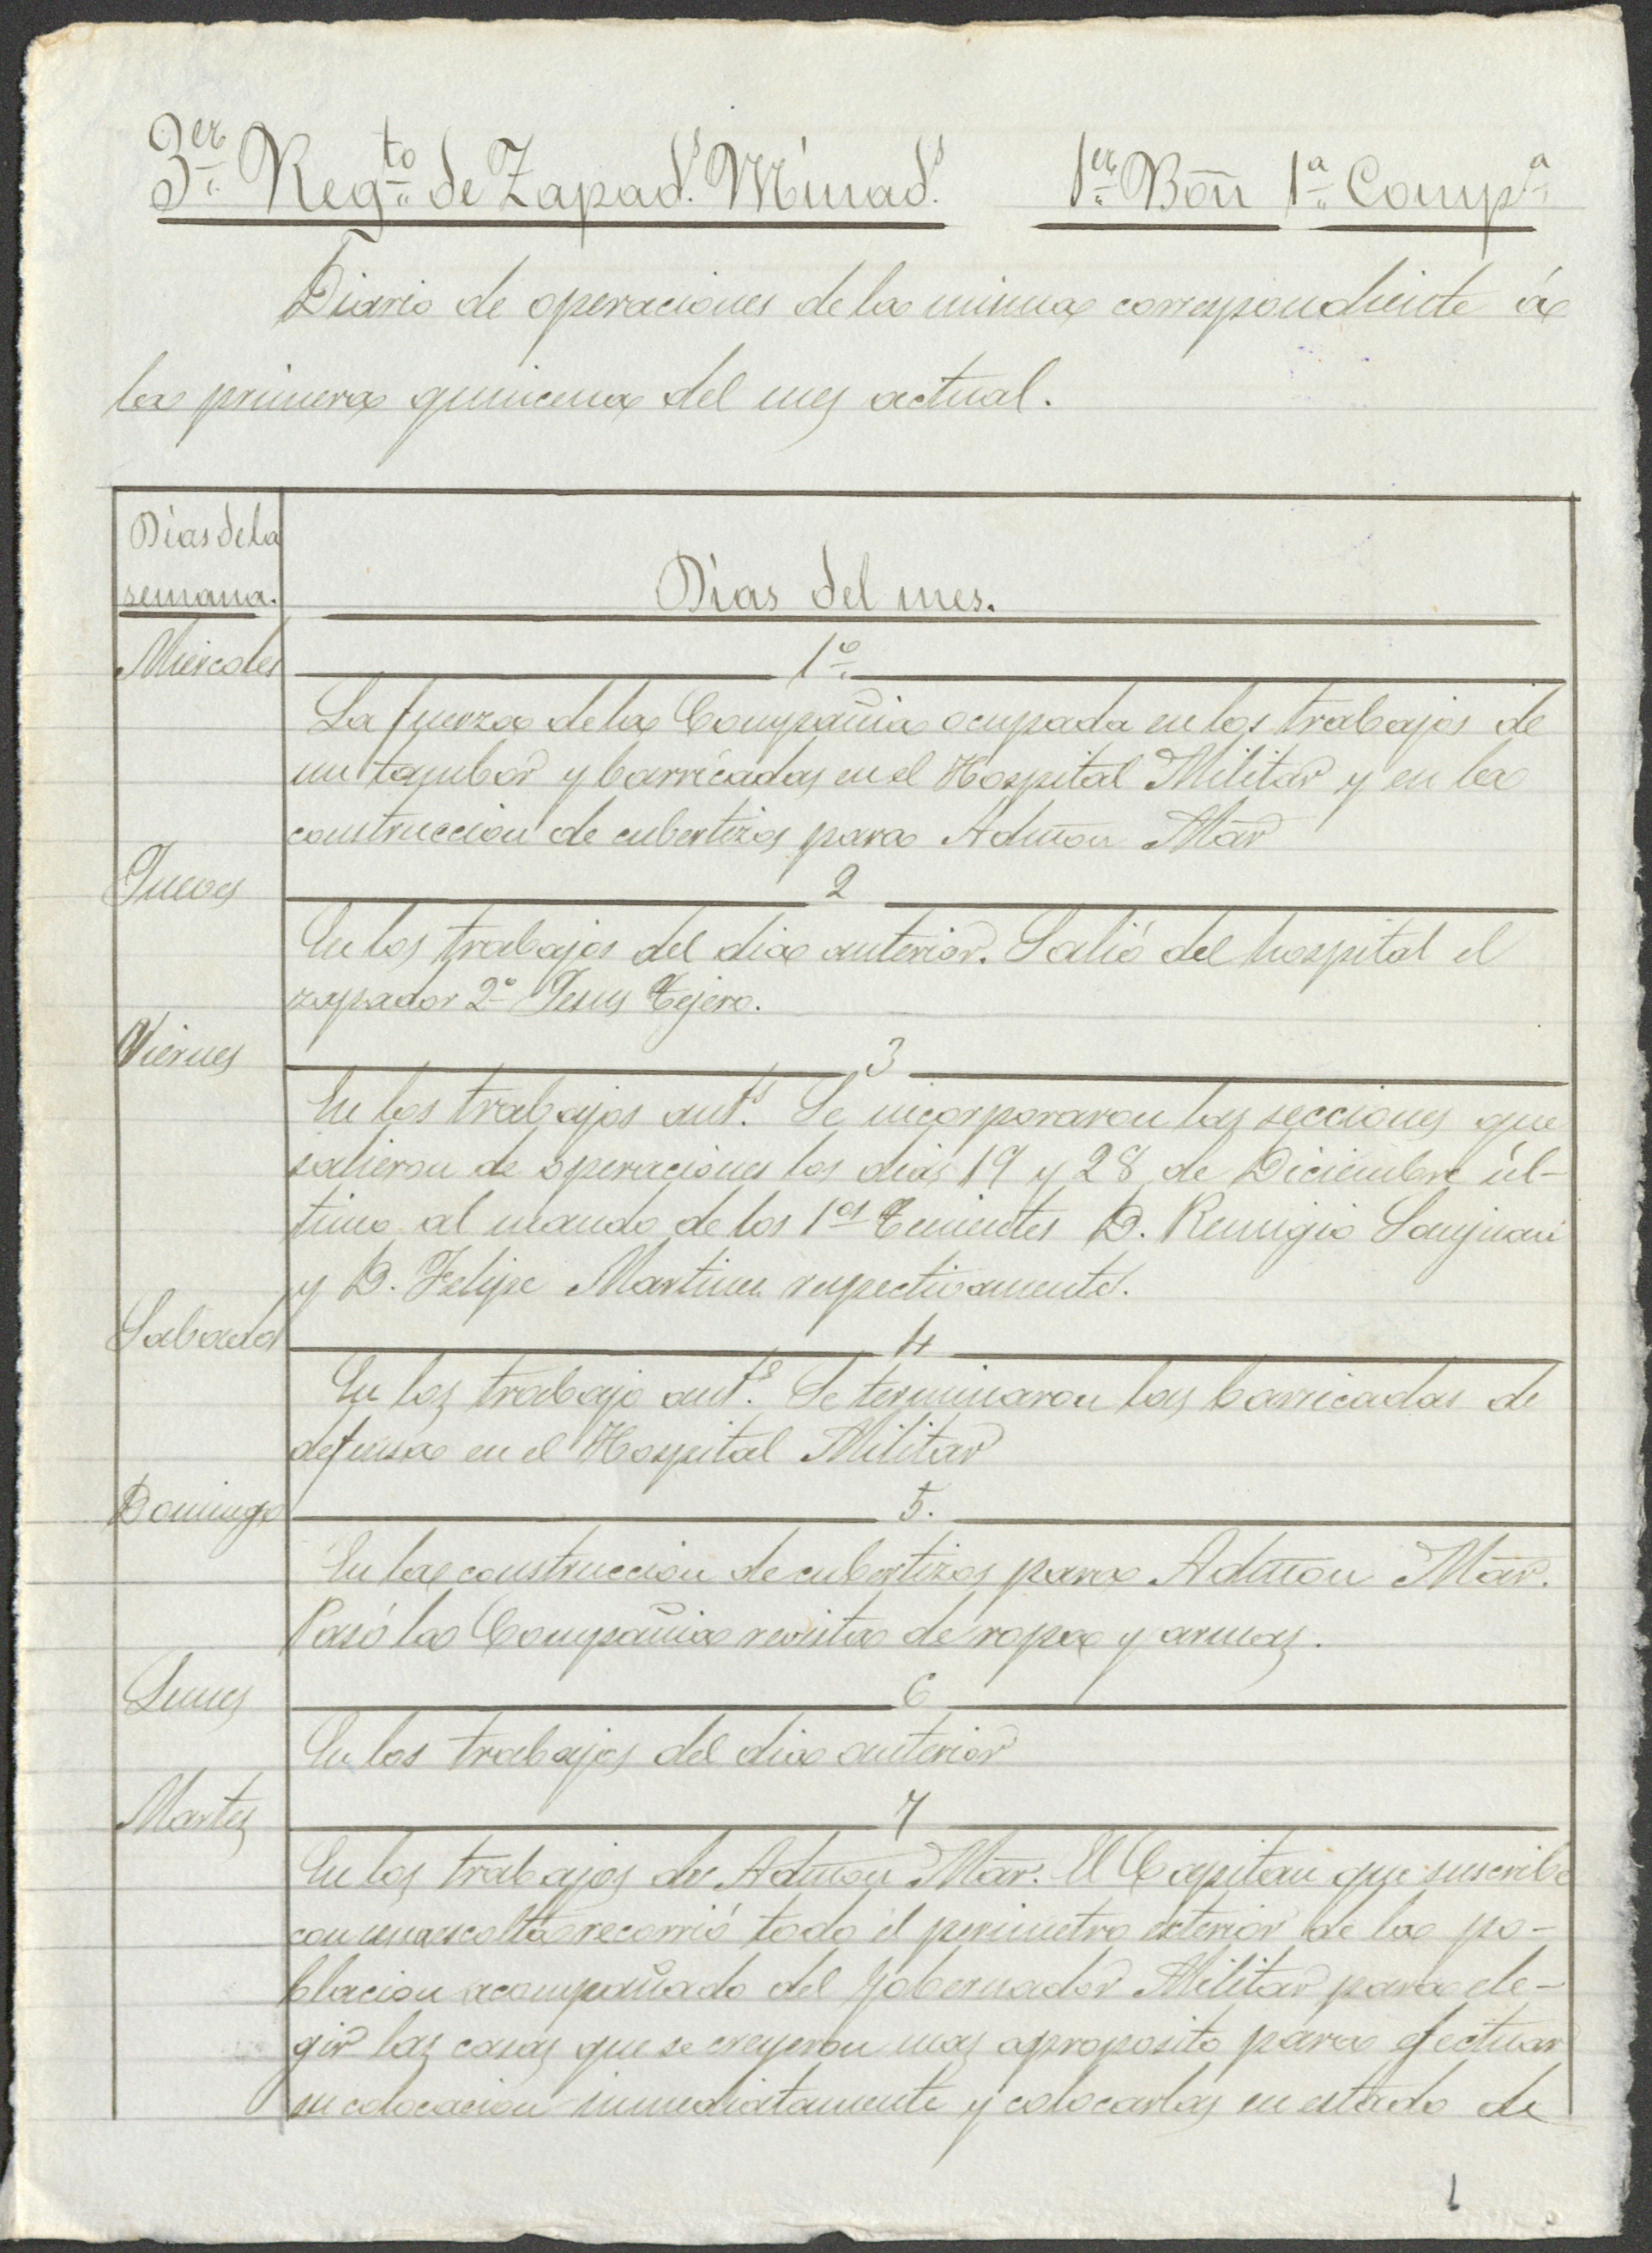 3er Regto de Zapads. Minads. 1er Bôn 1a Compa
Diario de operaciones de la misma correspondiente á
la primera quincena del mes actual.
Dias de la
semana.
Dias del mes.
Miercoles
1º
La fuerza de la Compañia ocupada en los trabajos de
un tambor y barricadas en el Hospital Militar y en la
construccion de cubertizos para Admon Mar
Jueves
2
En los trabajos del dia anterior. Salió del hospital el
zapador 2º Jesus Tejero.
Viernes
3
En los trabajos ants. Se incorporaron las secciones que
salieron de operaciones los dias 19 y 28 de Diciembre úl-
timo al mando de los 1os Tenientes D. Remigio Sanjuan
y D. Felipe Martinez respectivamente.
Sabado
4
En los trabajo ants. Se terminaron las barricadas de
defensa en el Hospital Militar
Domingo
5.
En la construccion de cubertizos para Admon Mar.
Pasó la Compañia revista de ropa y armas.
Lunes
6
En los trabajos del dia anterior
Martes
7
En los trabajos de Admon Mar. El Capitan que suscribe
con una escolta recorrió todo el perimetro exterior de la po-
blacion acompañado del Gobernador Militar para ele-
gir las casas que se creyeron mas aproposito para efectuar
su colocacion inmediatamente y colocarlas en estado de
1